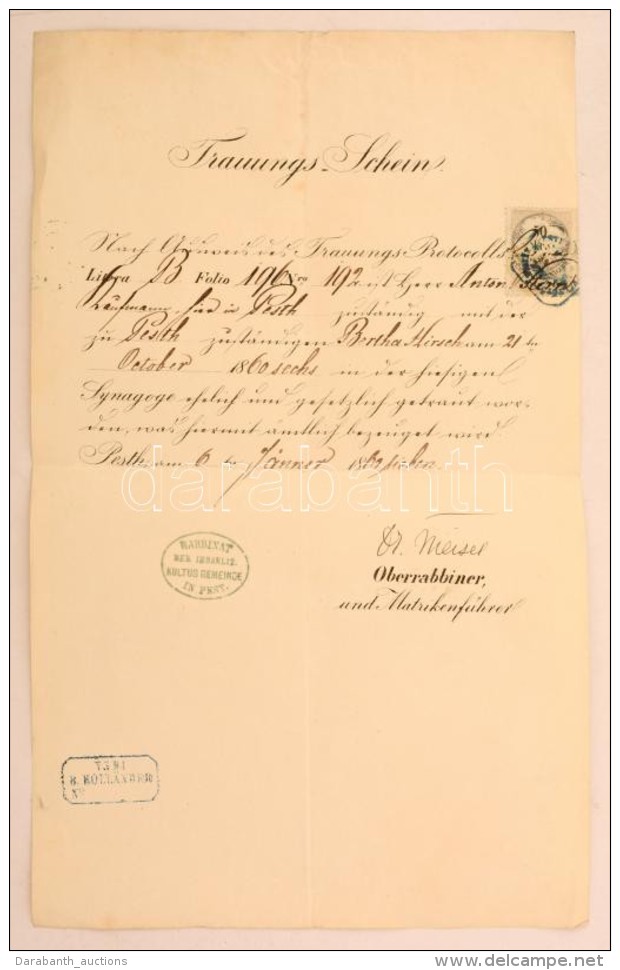 Trauungs-Schein.
50
Nach Ausweis des Trauungs-Protocolls
Littra B Folio 196 Nro 192 ist Herr Anton
Kaufmann, hier in Pesth zuständig mit der
zu Pesth zuständigen Bertha Hirsch am 21 ten
October 1860 sechs in der hiesigen
Synagoge ehelich und gesetzlich getraut wor-
den, was hiermit amtlich bezeuget wird
Pesth am 6 ten Jänner 186 sieben.
darabanth
Dr. Meisel
Oberrabbiner,
und Matrikenführer
RABBINAT
DER ISRAELIT.
KULTUS GEMEINDE
IN PEST.
B. HOLLÄNDER
Darabanth_auctions
www.delcampe.net